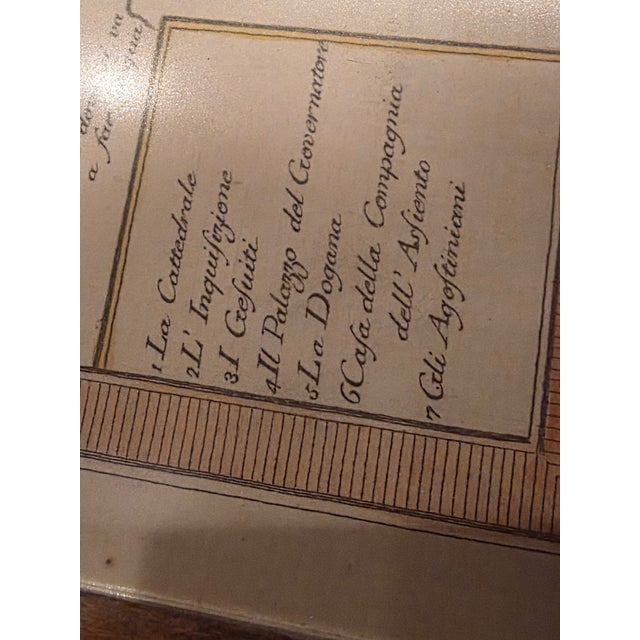 a far
1 La Cattedrale
2 L' Inquiſizione
3 I Geſuiti
4 Il Palazzo del Governatore
5 La Dogana
6 Caſa della Compagnia
dell' Aſſiento
7 Gli Agoſtiniani